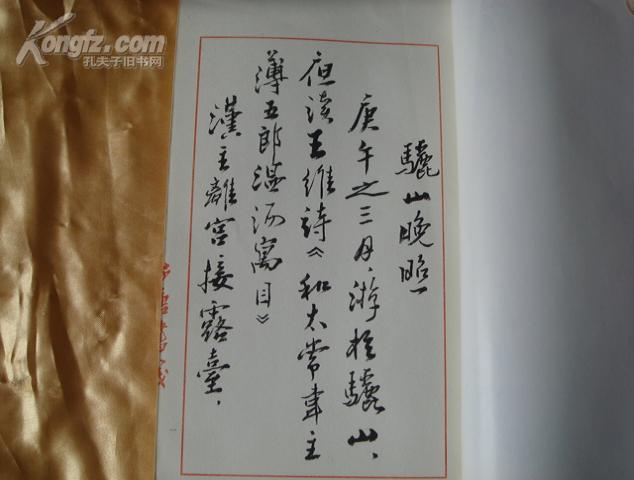 Kongfz.com
孔夫子旧书网
驪山晚照
庚午之三月、游於驪山、
夜读王維詩《和太常韋主
薄五郎温汤寓目》
漢主離宮接露臺，